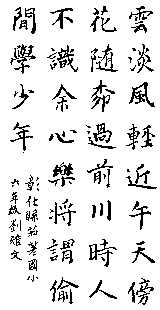 雲淡風輕近午天傍
花隨柳過前川時人
不識余心樂將謂偷
閒學少年
彰化縣茄荖國小
六年級劉文